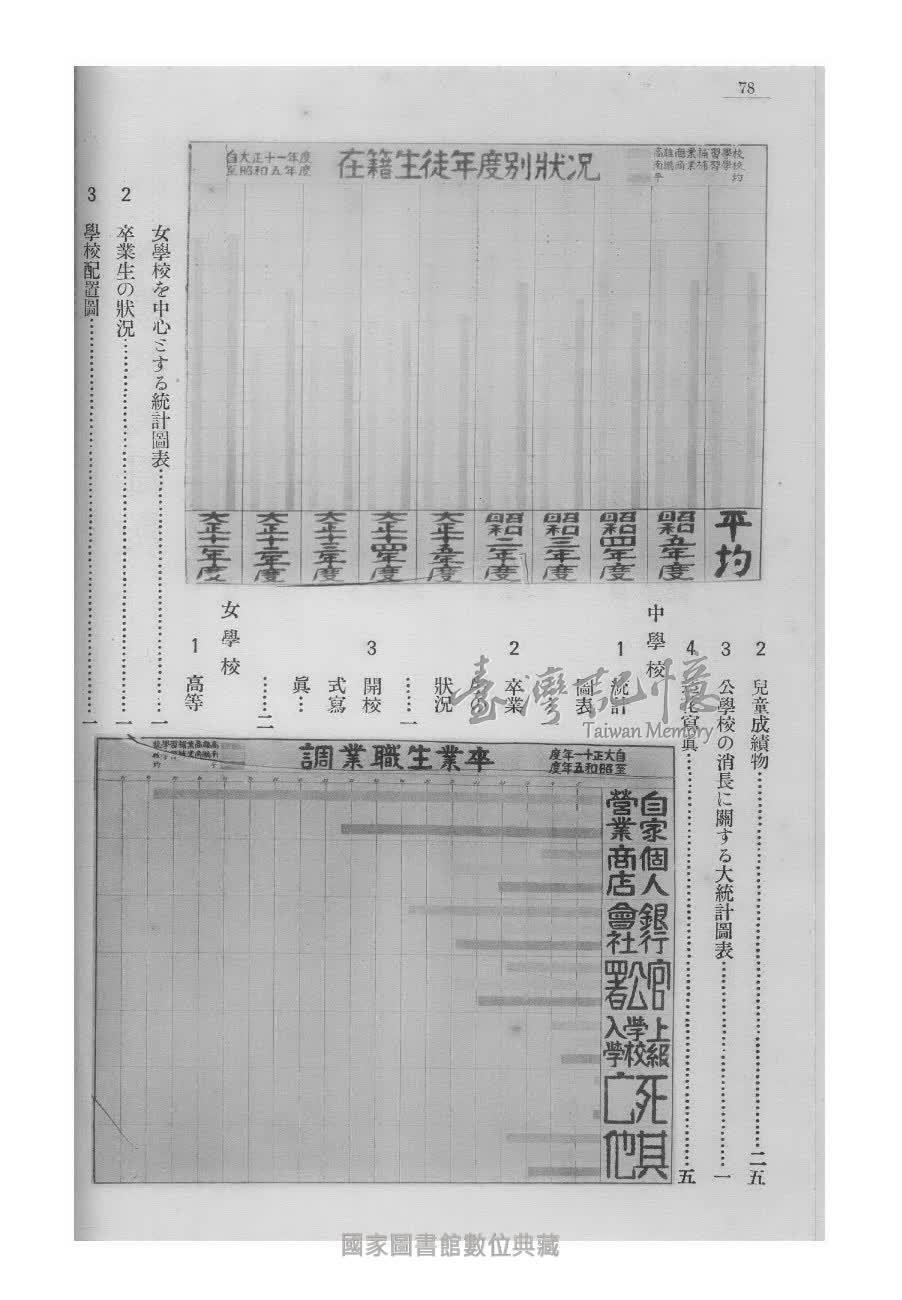 78
在籍生徒年度別狀況
自大正十一年度
至昭和五年度
高雄商業補習學校
商業補習學校
平均
平均
昭和五年度
昭和四年度
昭和三年度
昭和二年度
大正十五年度
大正十四年度
大正十三年度
大正十二年度
大正十一年度
2 兒童成績物……二五
3 公學校の消長に關する大統計圖表……一
4 寫眞……五
中學校
1 統計
圖表
2 卒業
生の
狀況
……一
3 開校
式寫
眞…
……二
女學校
1 高等
女學校を中心とする統計圖表……一
2 卒業生の狀況……一
3 學校配置圖……一
卒業生職業調
自大正十一年度
至昭和五年度
自家營業
個人商店
銀行會社
官公署
上級學校入學
死亡
其他
臺灣記憶
Taiwan Memory
國家圖書館數位典藏